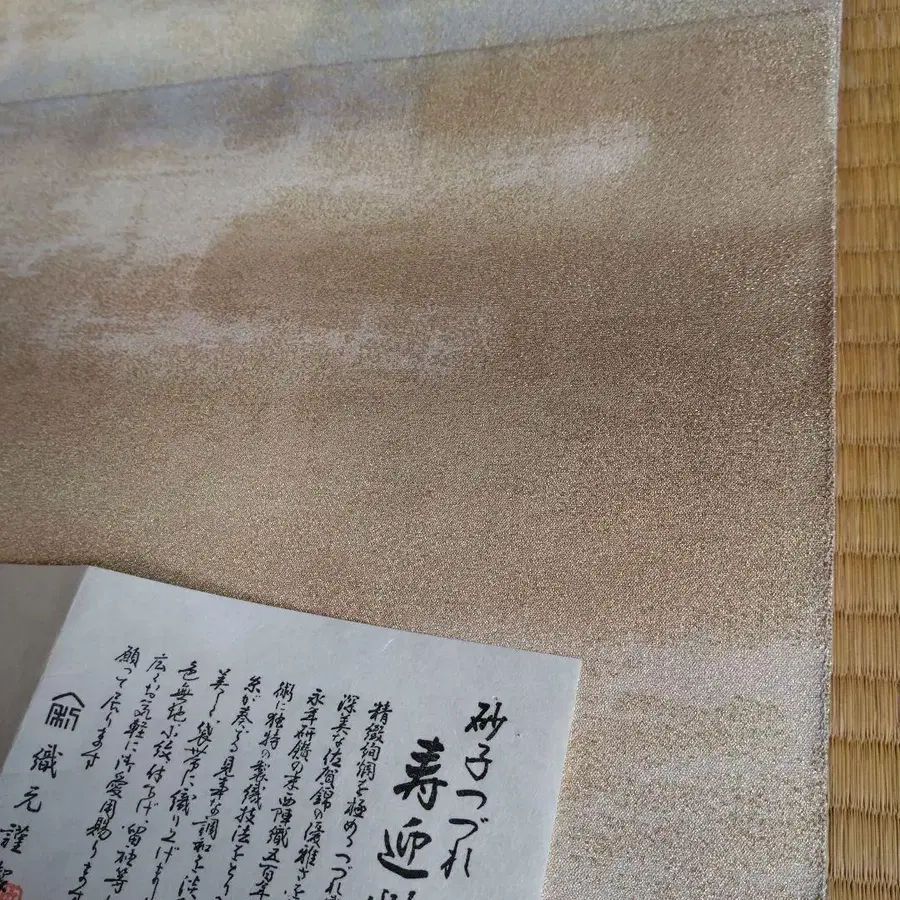 砂子つづれ
寿迎
精緻絢爛を極めるつづれ
深美な佐賀錦の優雅さを
永年研鑽の末西陣織五百年
術に独特の製織技法をとり
糸が奏でる見事な調和を
美しく袋帯に織り上げまし
色無地小紋付下げ留袖等
広くお気軽に御愛用賜ります
願って居ります
織元謹